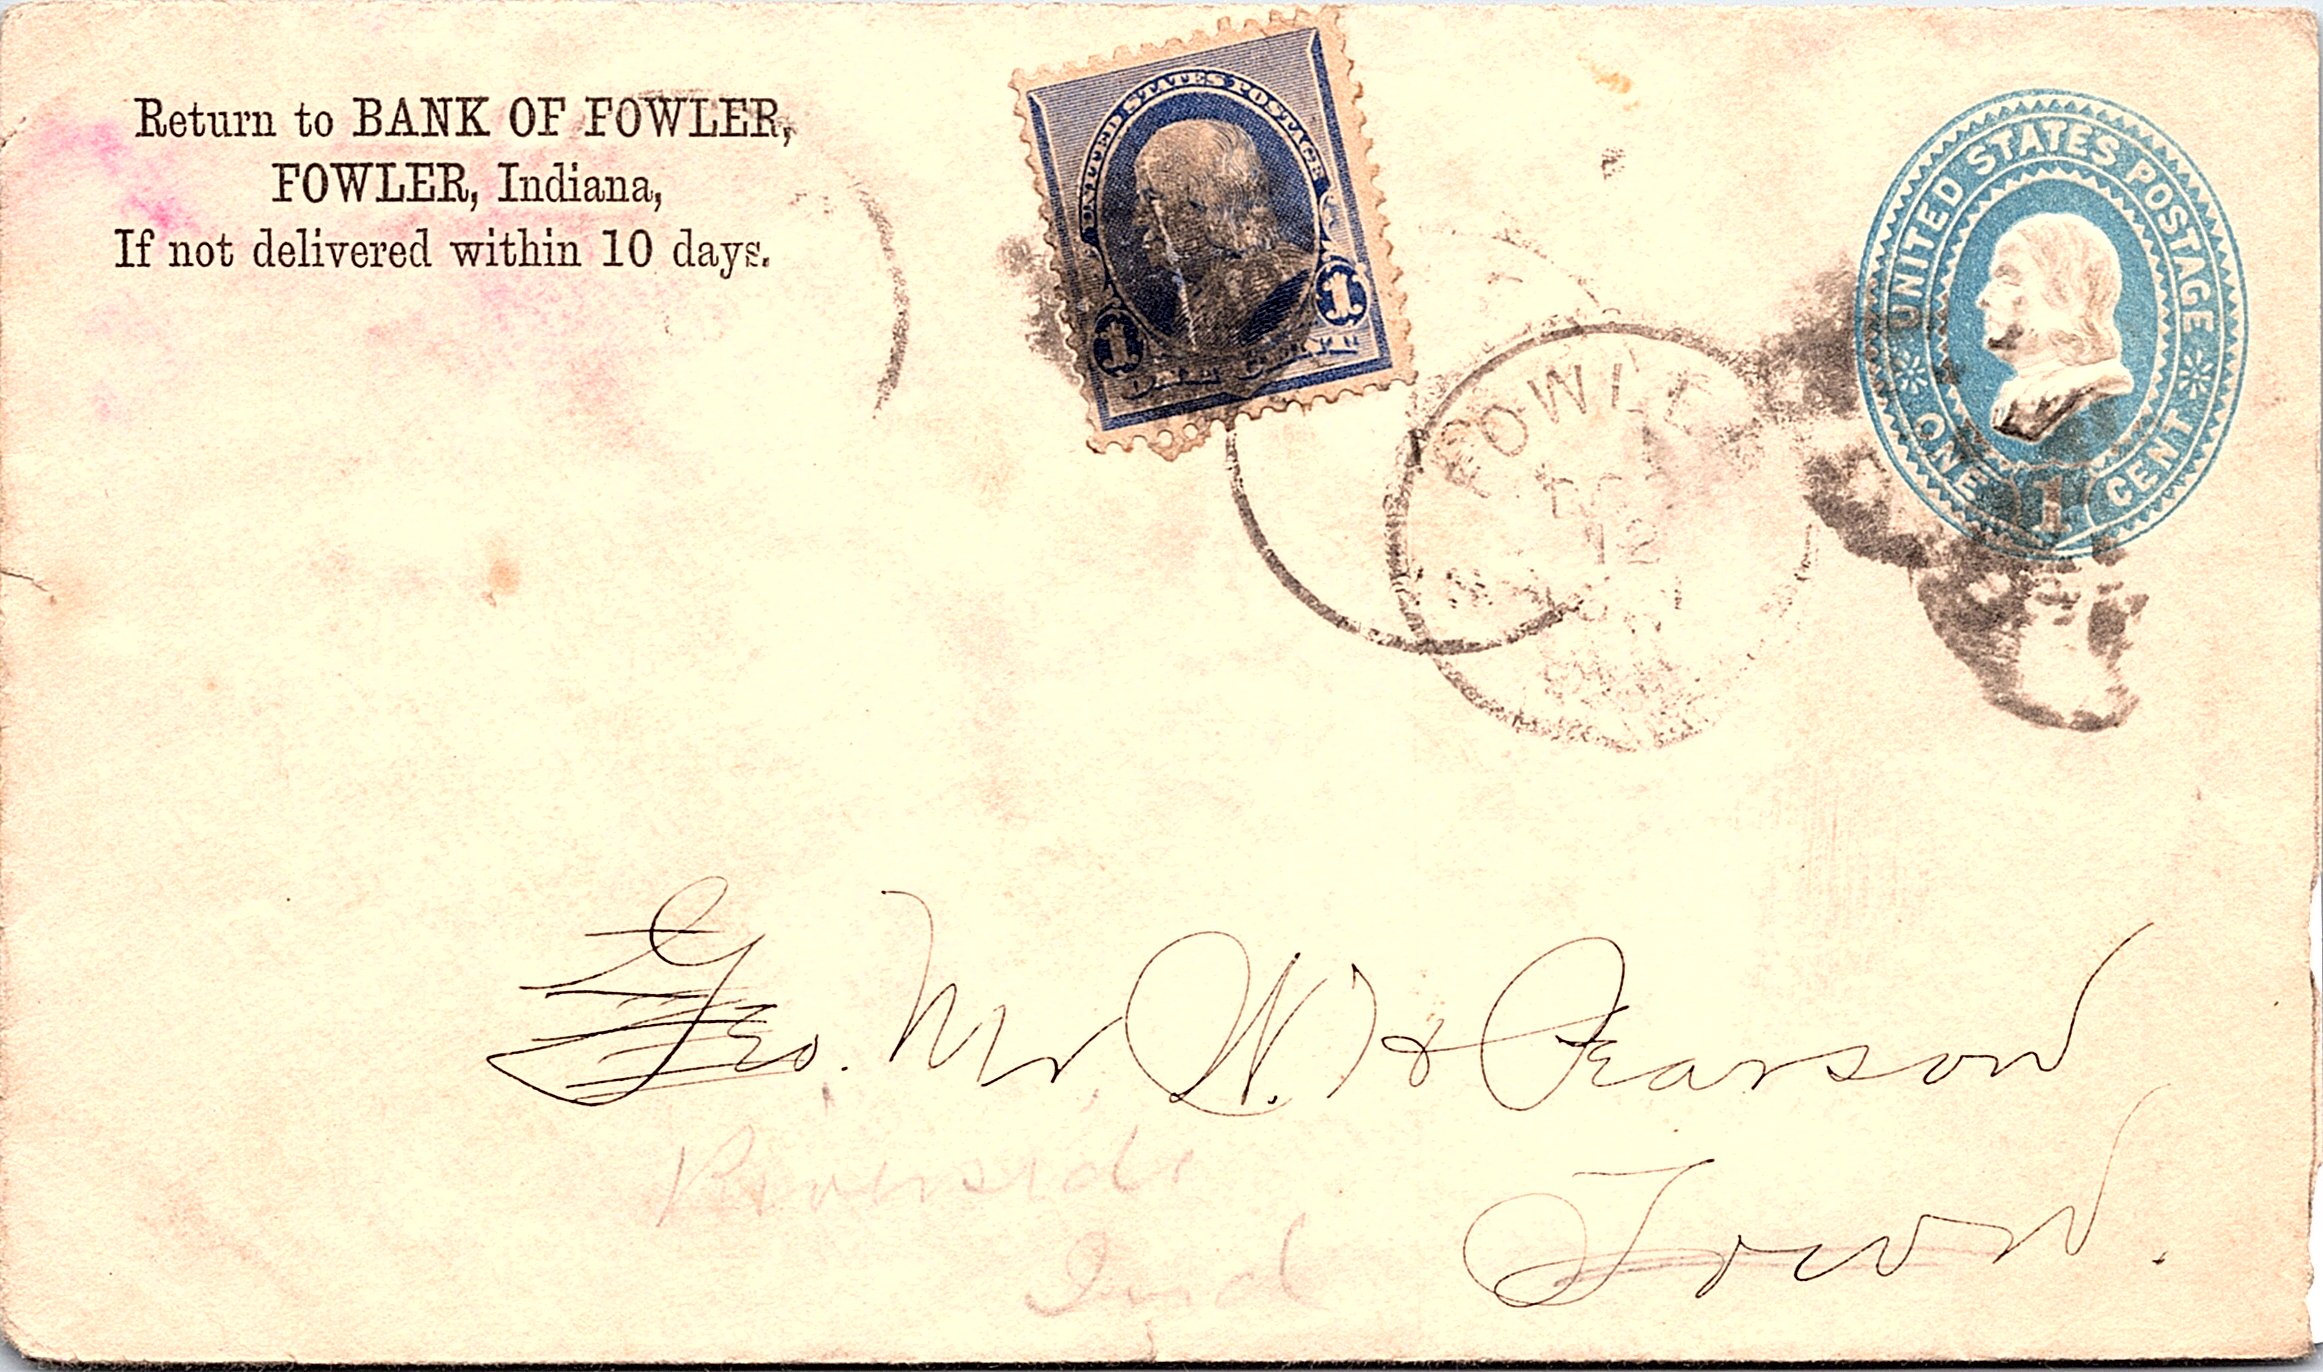 Return to BANK OF FOWLER,
FOWLER, Indiana,
If not delivered within 10 days.
UNITED STATES POSTAGE
1 1
UNITED STATES POSTAGE
ONE 1 CENT
FOWLE
12
Geo. Mr W. H Pearson
Riverside
Ind
Town.